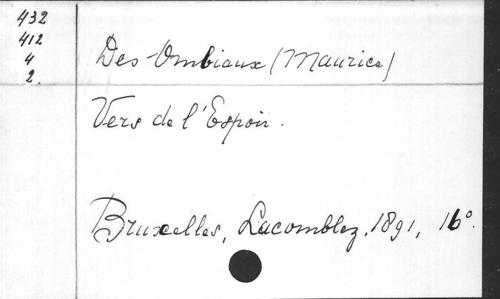 432
412
4
2.
Des Ombiaux (Maurice)
Vers de l'Espoir.
Bruxelles, Lacomblez, 1891, 16°.